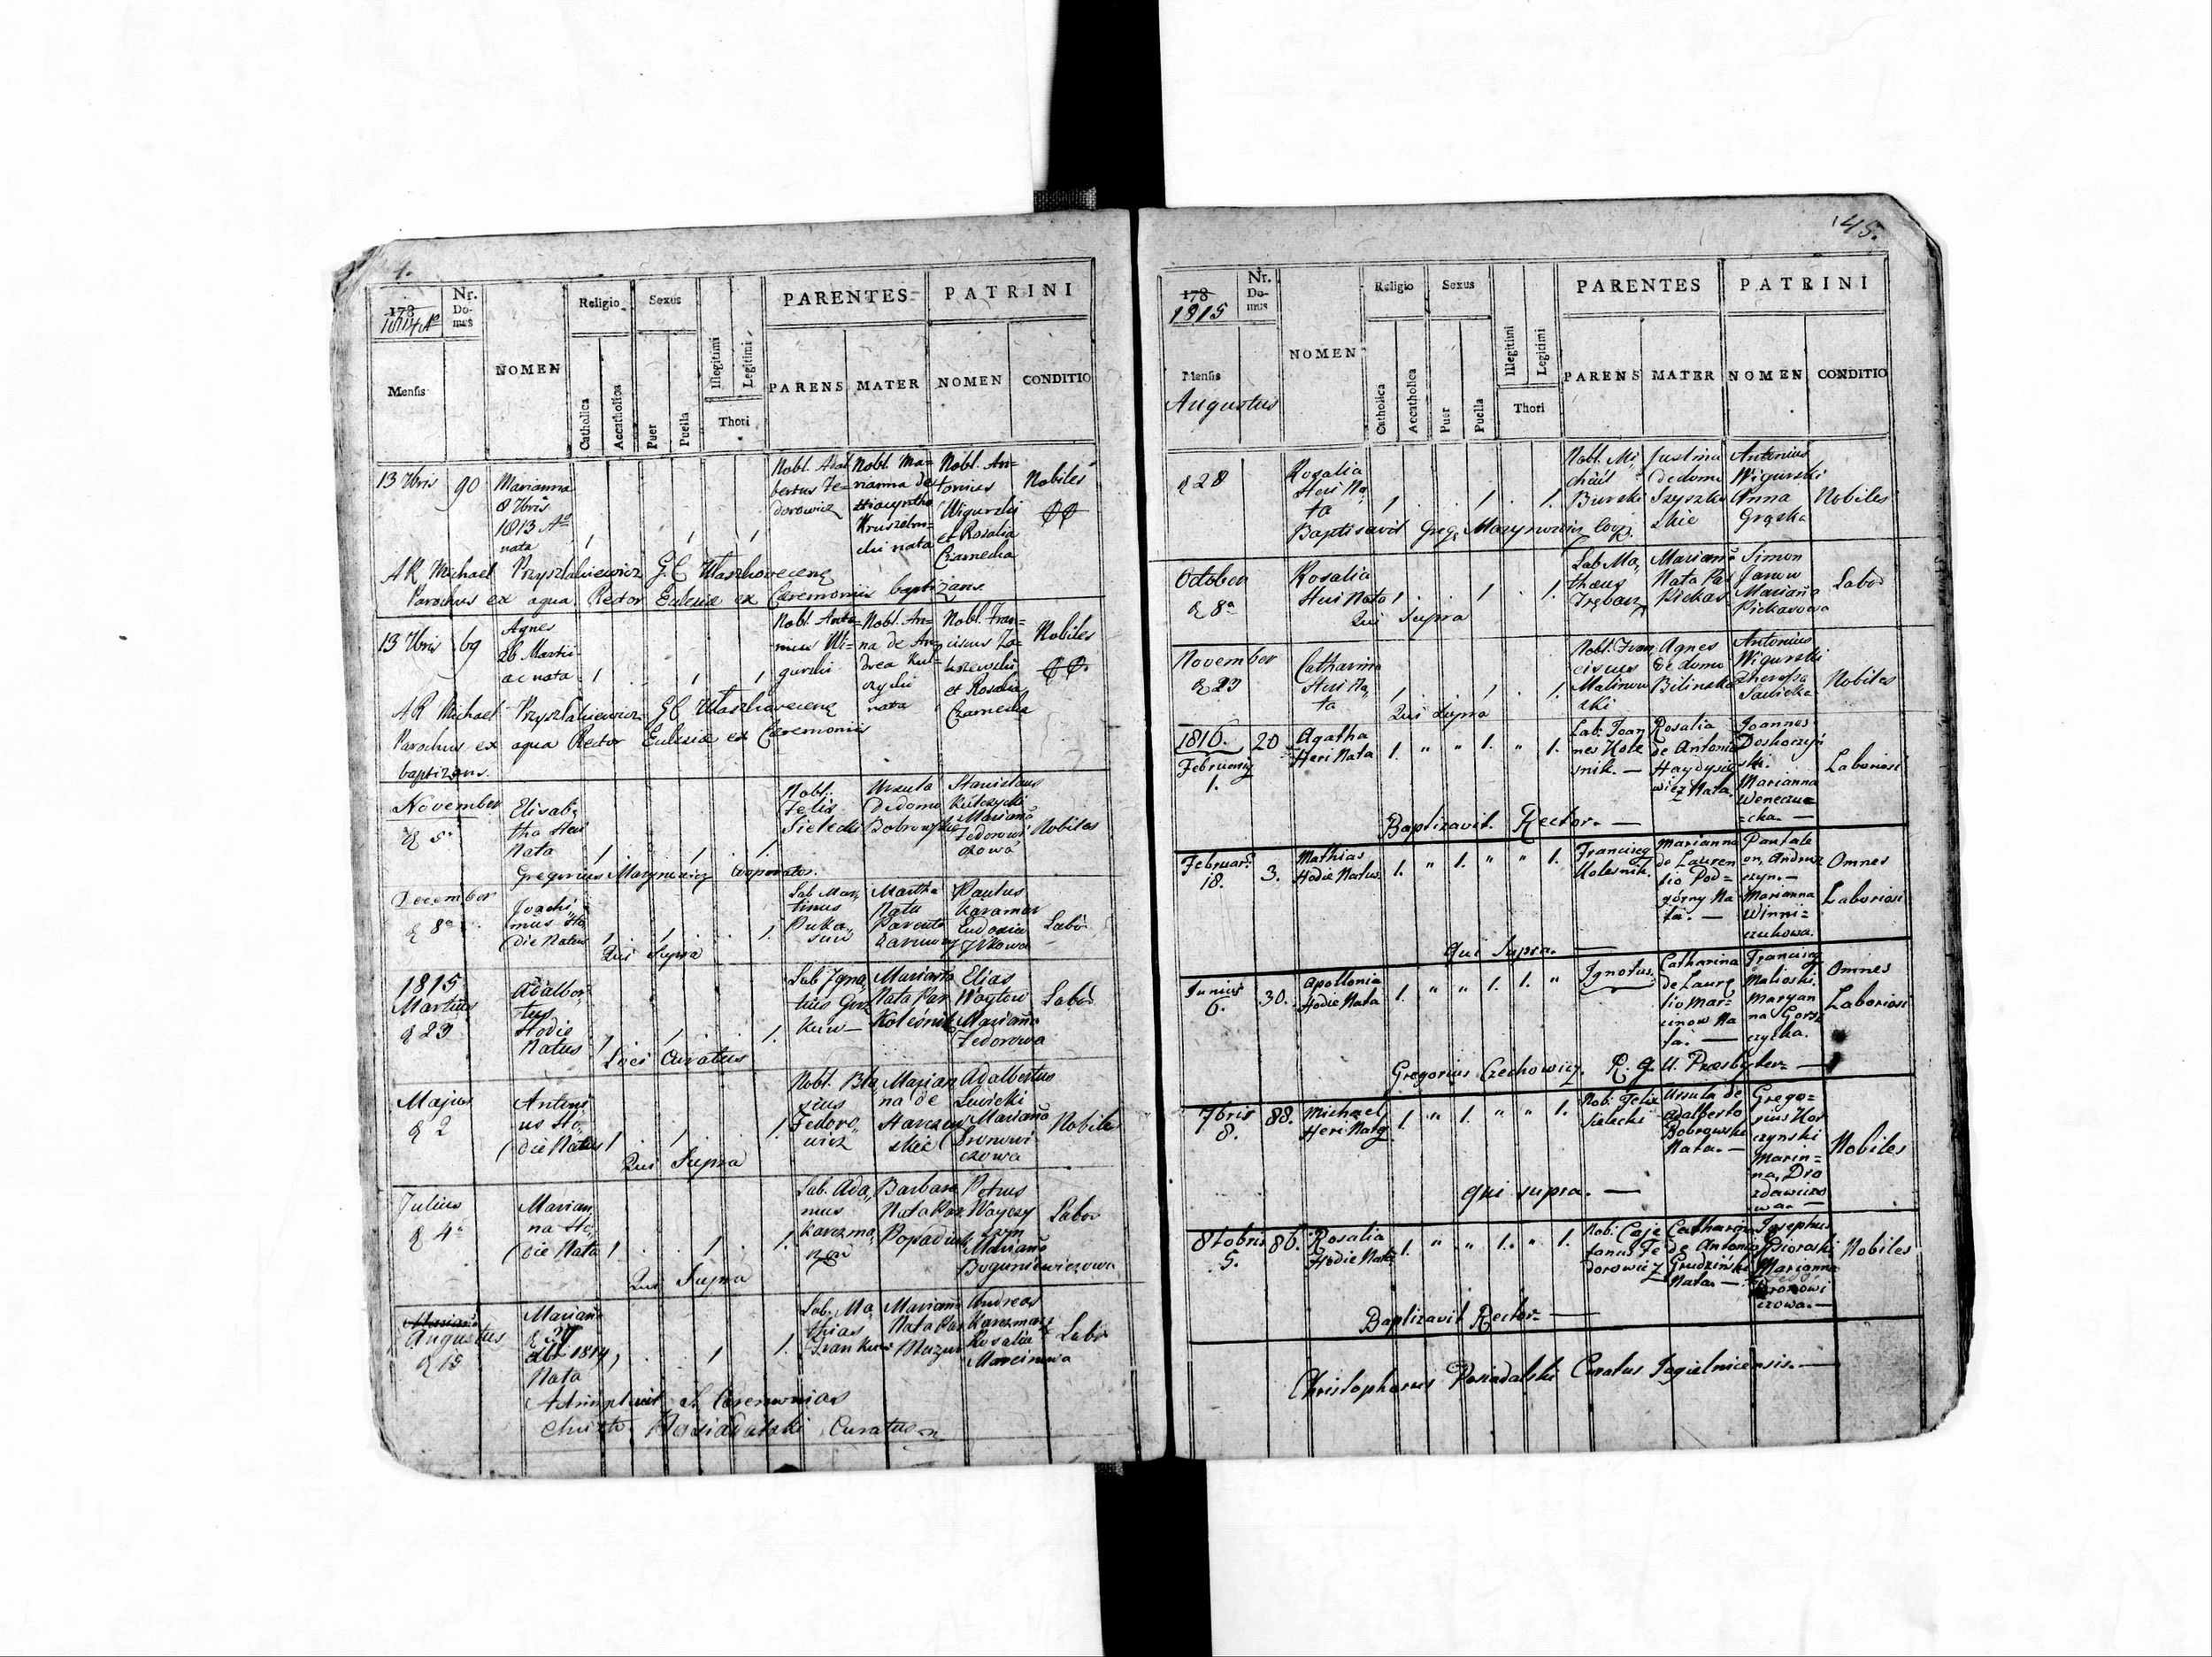 1.
178
1814 Aº
Mensis
Nr. Do- mus
NOMEN
Religio
Catholica
Accatholica
Sexus
Puer
Puella
Illegitimi
Legitimi
Thori
PARENTES
PARENS
MATER
PATRINI
NOMEN
CONDITIO
13 7bris 90 Marianna
8 7bris
1813 Aº
nata
1 1 1
Nobl. Adal
bertus Fe=
dorowicz
Nobl. Ma=
rianna de
Hiacyntho
Kruszelni
cki nata
Nobl. An=
tonius
Wigurski
et Rosalia
Czarnecka
Nobiles
AR Michael Przyszlakiewicz G.C. Ułaszkovecene
Parochus ex aqua Rector Eclesiæ ex Cæremoniis baptizans.
13 7bris 69 Agnes
26 Martii
ac nata
1 1 1
Nobl. Anto=
nius Wi=
gurski
Nobl. An=
na de An
drea Kul=
czycki
nata
Nobl. Fran=
ciscus
et Rosalia
Czarnecka
Nobiles
AR Michael Przyszlakiewicz G.C. Ułaszkovecene
Parochus ex aqua Rector Eclesiæ ex Cæremoniis
baptizans.
November
d 5ª
Elisab
tha Heri
Nata
1 . . 1 . 1.
Nobl.
Felix
Sielecki
Ursula
Dedomo
Bobrowskie
Stanislaus
Kulczycki
Mariana
Fedorowi
czowa
Nobiles
Gregorius Marynowicz Cooperator.
December
d 8ª
Joachi
mus Ho
die Natus
1 . 1 . . 1.
Lab Mar
tinus
Martha
Nata
Parente
Paulus
Karamar
Eudoxia
Labo
Qui Supra
1815
Martius
d 23
Adalber
tus
Hodie
Natus
1 . 1 . . 1.
Lab Igna
tius
Marianna
Nata Par
Kolesnik
Elias
Woytow
Mariana
Fedorowa
Labo
Loci Curatus
Majus
d 2
Antoni
us Ho
die Natus
1 . 1 . . 1.
Nobl. Bla
sius
Fedoro
wicz
Marian
na de
Adalbertus
Lewicki
Mariana
Bronowi
czowa
Nobiles
Qui Supra
Julius
d 4ª
Marian
na Ho
die Nata
1 . . 1 . 1.
Lab. Ada
mus
Barbara
Nata Par
Popadiuk
Petrus
Mariana
Boguniewiczowa
Labo
Qui Supra
Augustus
d 15
Mariana
d 27
1814
Nata
1 . . 1 . 1.
Lab. Ma
thias
Mariana
Nata Par
Mazur
Andreas
Karczmarz
Rosalia
Marcinowa
Labo
Adimplevit S. Ceremonias
Christo. Posiadalski Curatus
45.
178
1815
Mensis
Augustus
Nr. Do- mus
NOMEN
Religio
Catholica
Accatholica
Sexus
Puer
Puella
Illegitimi
Legitimi
Thori
PARENTES
PARENS
MATER
PATRINI
NOMEN
CONDITIO
d 28
Rosalia
Heri Na
ta
1 . . 1 . 1.
Nobl. Mi
chael
Burski
Justina
de domo
Szyszko
skie
Antonius
Wigurski
Anna
Grąska
Nobiles
Baptisavit Greg. Marynowicz Coop.
October
d 8ª
Rosalia
Heri Nata
1 . . 1 . 1.
Lab Ma
thæus
Trębacz
Mariana
Nata Par
Piekar
Simon
Janow
Mariana
Piekarowa
Labo
Qui Supra
November
d 23
Catharina
Heri Na
ta
1 . . 1 . 1.
Nobl. Fran
ciscus
Malinow
ski
Agnes
de domo
Bilinska
Antonius
Wigurski
Theresa
Sawicka
Nobiles
Qui Supra
1816.
Februarij
1.
20
Agatha
Heri Nata
1. " " 1. " 1.
Lab. Joan
nes Kole
snik. —
Rosalia
de Antonio
Haydysie
wicz Nata.
Joannes
Doskoczyń
ski.
Marianna
Weneczu=
=cka. —
Laboriosi
Baptizavit. Rector. —
Februar:
18.
3.
Mathias
Hodie Natus.
1. " 1. " " 1.
Franciscq
Kolesnik.
Marianna
de Lauren
tio Pod=
górny Na
ta. —
Pantale
on, Andru
czyn. —
Marianna
Winni=
czukowa.
Omnes
Laboriosi
qui Supra. —
Junius
6.
30.
Apollonia
Hodie Nata
1. " " 1. 1. "
Ignotus.
Catharina
de Laure
tio Mar=
cinow Na
ta. —
Franciscq
Malioski.
Maryan
na Gors
czycka.
Omnes
Laboriosi
Gregorius Czechowicz. R. g. U. Præsbyter. —
7bris
8.
88.
Michael
Heri Natq
1. " 1. " " 1.
Nob: Felix
Sielecki
Ursula de
Adalberto
Bobrowski
Nata. —
Grego=
rius Kor
czynski
Marian=
na, Dro
zdowiczo
wa. —
Nobiles
qui supra. —
8tobris
5.
86.
Rosalia
Hodie Nata
1. " " 1. " 1.
Nob: Caje
tanus Fe
dorowicz
Catharina
de Antonio
Grudziński
Nata. —
Josephus
Pioroski
Marianna
Bronowi
czowa. —
Nobiles
Baptizavit Rector. —
Christophorus Posiadalski Curatus Jagielnicensis. —